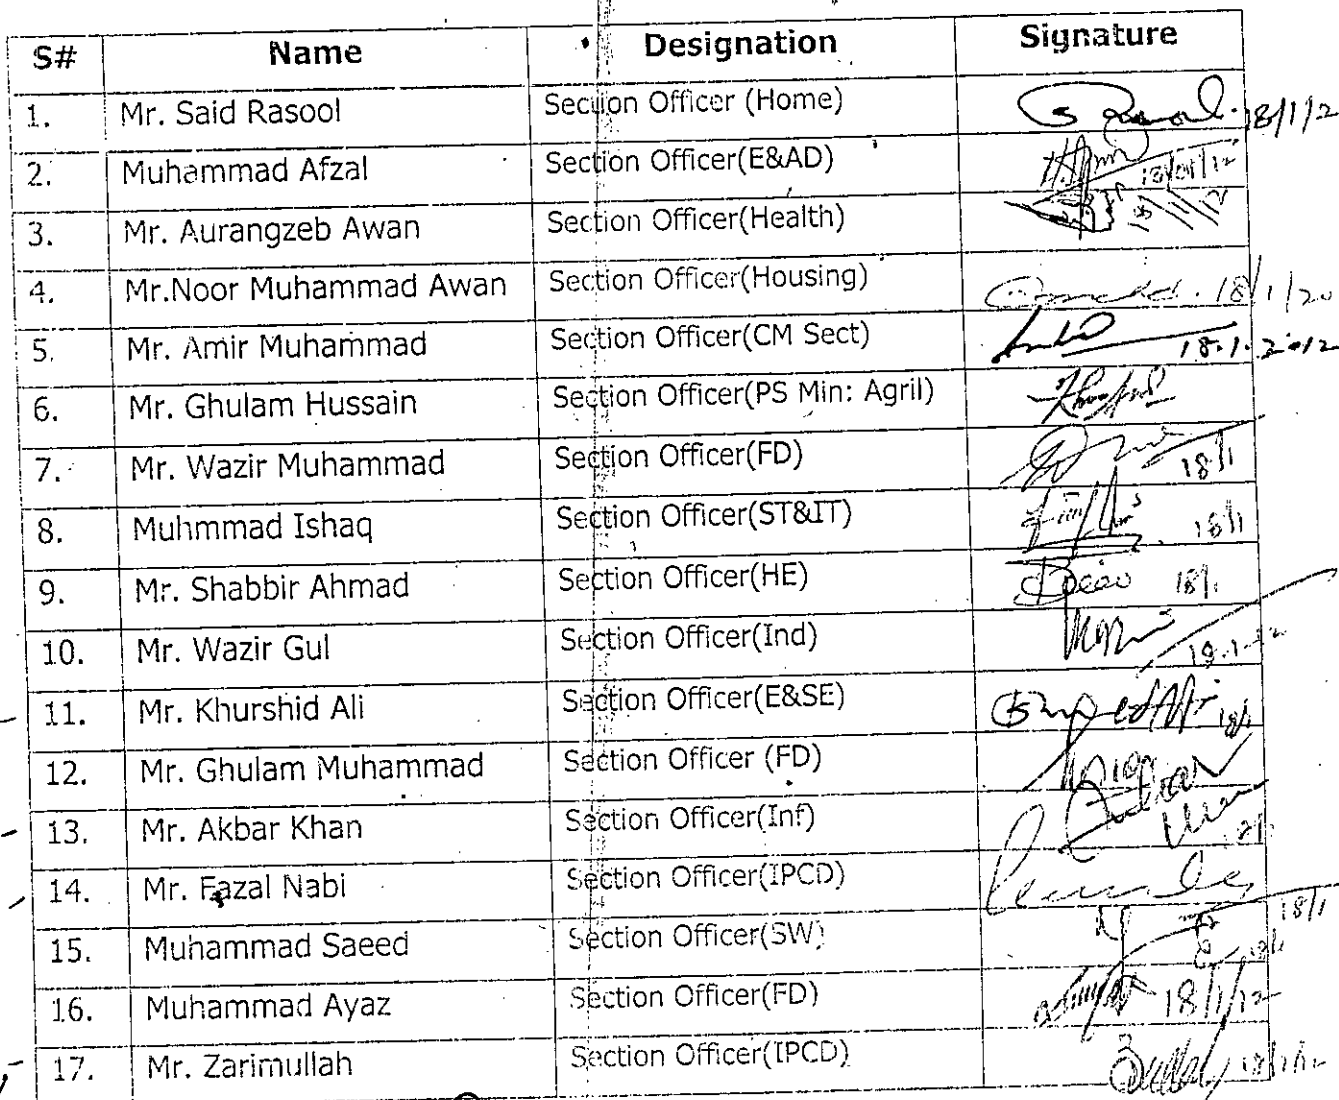 S# Name Designation Signature
1. Mr. Said Rasool Section Officer (Home) 18/1/2
2. Muhammad Afzal Section Officer(E&AD) 18/01/12
3. Mr. Aurangzeb Awan Section Officer(Health)
4. Mr.Noor Muhammad Awan Section Officer(Housing) 18/1/20
5. Mr. Amir Muhammad Section Officer(CM Sect) 18.1.2012
6. Mr. Ghulam Hussain Section Officer(PS Min: Agril)
7. Mr. Wazir Muhammad Section Officer(FD) 18/1
8. Muhmmad Ishaq Section Officer(ST&IT) 18/1
9. Mr. Shabbir Ahmad Section Officer(HE)
10. Mr. Wazir Gul Section Officer(Ind)
11. Mr. Khurshid Ali Section Officer(E&SE) 18/1
12. Mr. Ghulam Muhammad Section Officer (FD)
13. Mr. Akbar Khan Section Officer(Inf)
14. Mr. Fazal Nabi Section Officer(IPCD)
15. Muhammad Saeed Section Officer(SW) 18/1
16. Muhammad Ayaz Section Officer(FD) 18/1/12
17. Mr. Zarimullah Section Officer(IPCD) 18/1/12